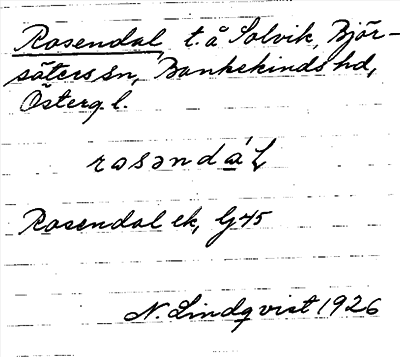 Rosendal, t. å Solvik, Björ-
säters sn, Bankekinds hd,
Österg. l.
rosəndál
Rosendal ek, Gj 45
N. Lindqvist 1926